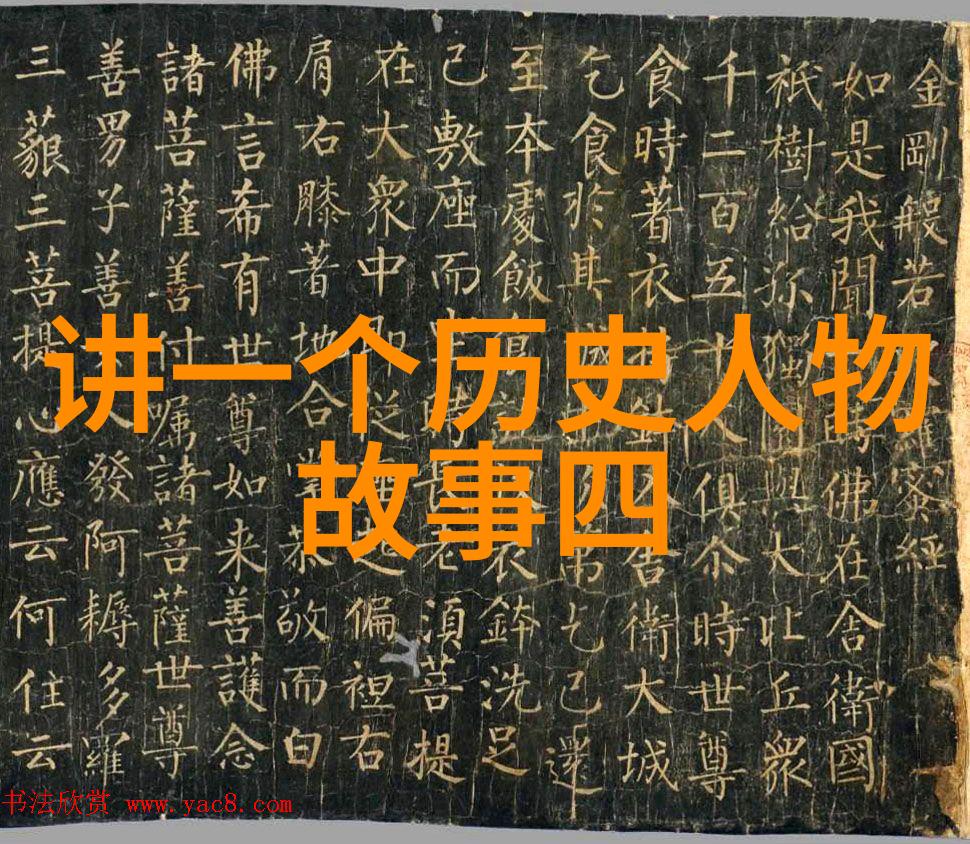 讲一个历史人物
故事四
金剛般若羅蜜經
如是我聞時佛在舍衛國
祇樹給孤獨園與大比丘衆
千二百五十人俱尒時世尊
食時著衣持鉢入舍衛大城
乞食於其城乞已還
至本處飯食衣鉢洗足
已敷座而坐時長老須菩提
在大衆中即從起偏袒右
肩右膝著地合掌恭敬而白
佛言希有世尊如来善護念
諸菩薩善付嘱諸菩薩世尊
善男子善人發阿耨多羅
三藐三菩提心應云何住云
书法欣赏 www.yac8.com